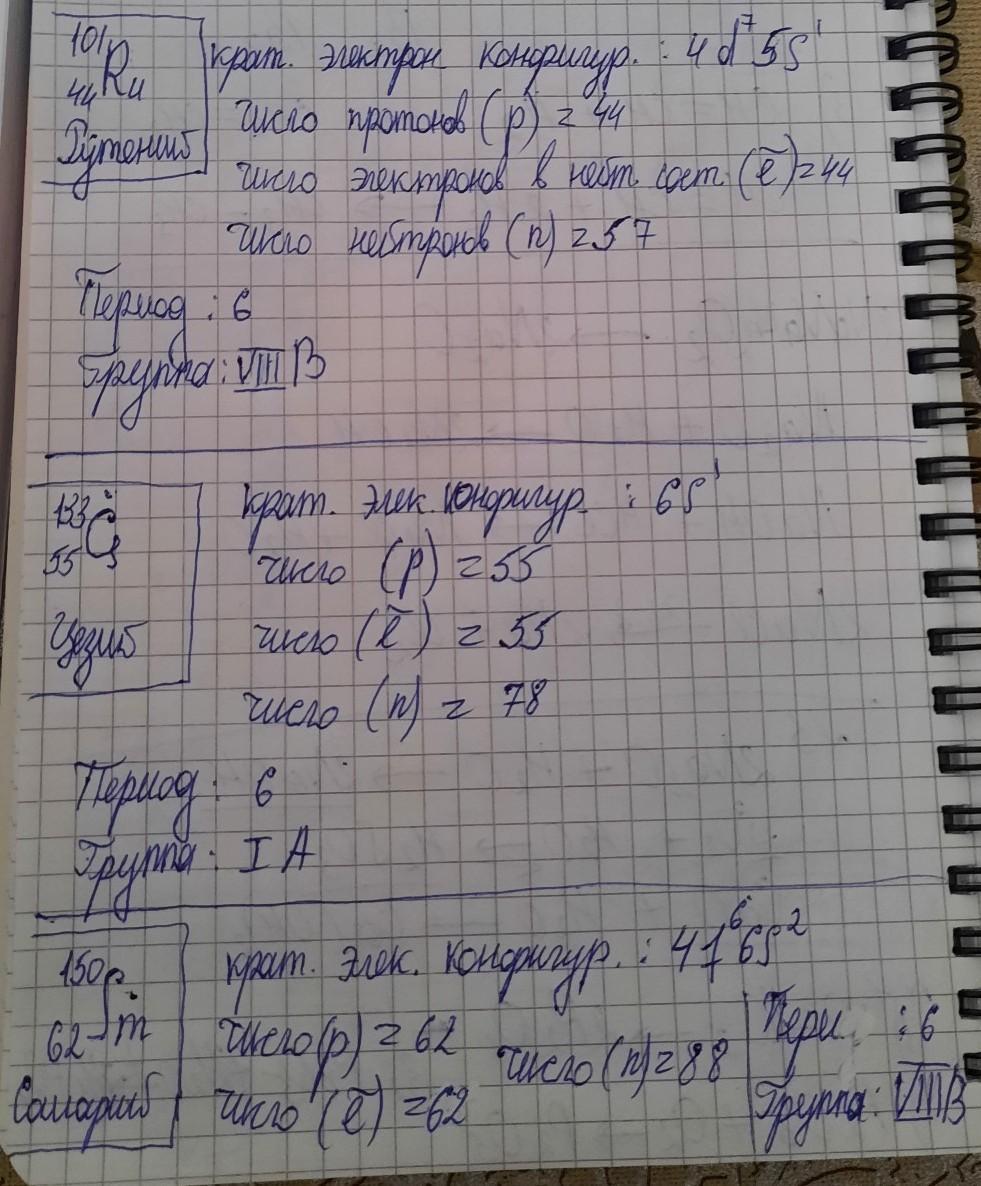 101
44 Ru
Рутений
крат. электрон конфигур. : 4d⁷5s¹
число протонов (p) = 44
число электронов в нейт. сост. (ē) = 44
число нейтронов (n) = 57
Период : 6
Группа: VIII B
133
55 Cs
Цезий
крат. элек. конфигур. : 6s¹
число (p) = 55
число (ē) = 55
число (n) = 78
Период: 6
Группа: I A
150
62 Sm
Самарий
крат. элек. конфигур. : 4f⁶6s²
число (p) = 62
число (n) = 88
число (ē) = 62
Пери. : 6
Группа: VIII B